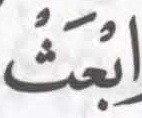 ابْعَثْ